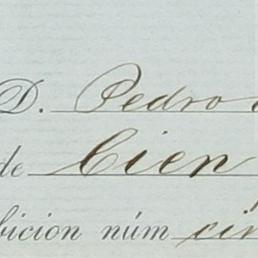 D. Pedro
de Cien
bicion núm cin